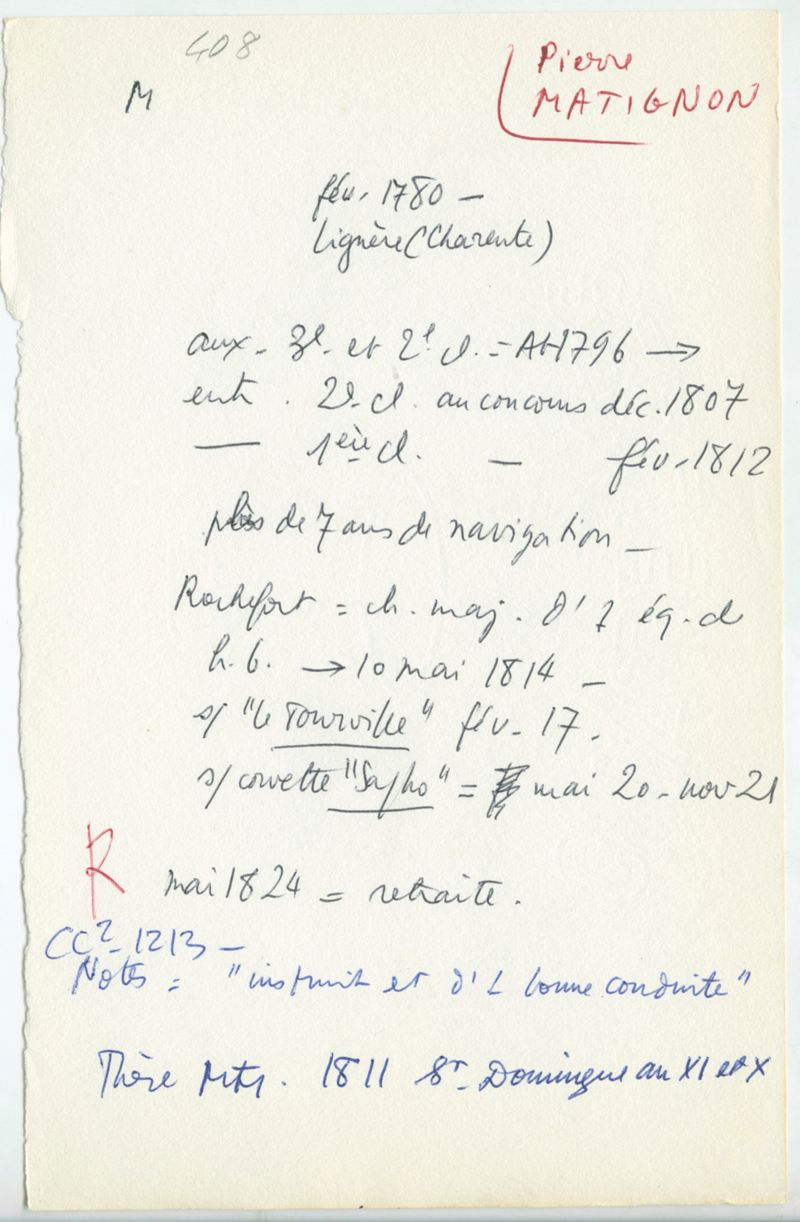 408
M
Pierre
MATIGNON
fév. 1780 —
Lignère (Charente)
aux. 3e. et 2e cl. = At 1796 →
ent. 2e. cl. au concours déc. 1807
— 1ère cl. — fév. 1812
plus de 7 ans de navigation —
Rochefort = ch. maj. d' 7 éq. d
h. b. → 10 mai 1814 —
s/ "le Tourville" fév. 17.
s/ corvette "Sapho" = mai 20 - nov 21
R mai 1824 = retraite.
CC2 - 1213 —
Notes = "instruit et d' 1 bonne conduite"
Thèse Mtp. 1811 St Domingue an XI et X